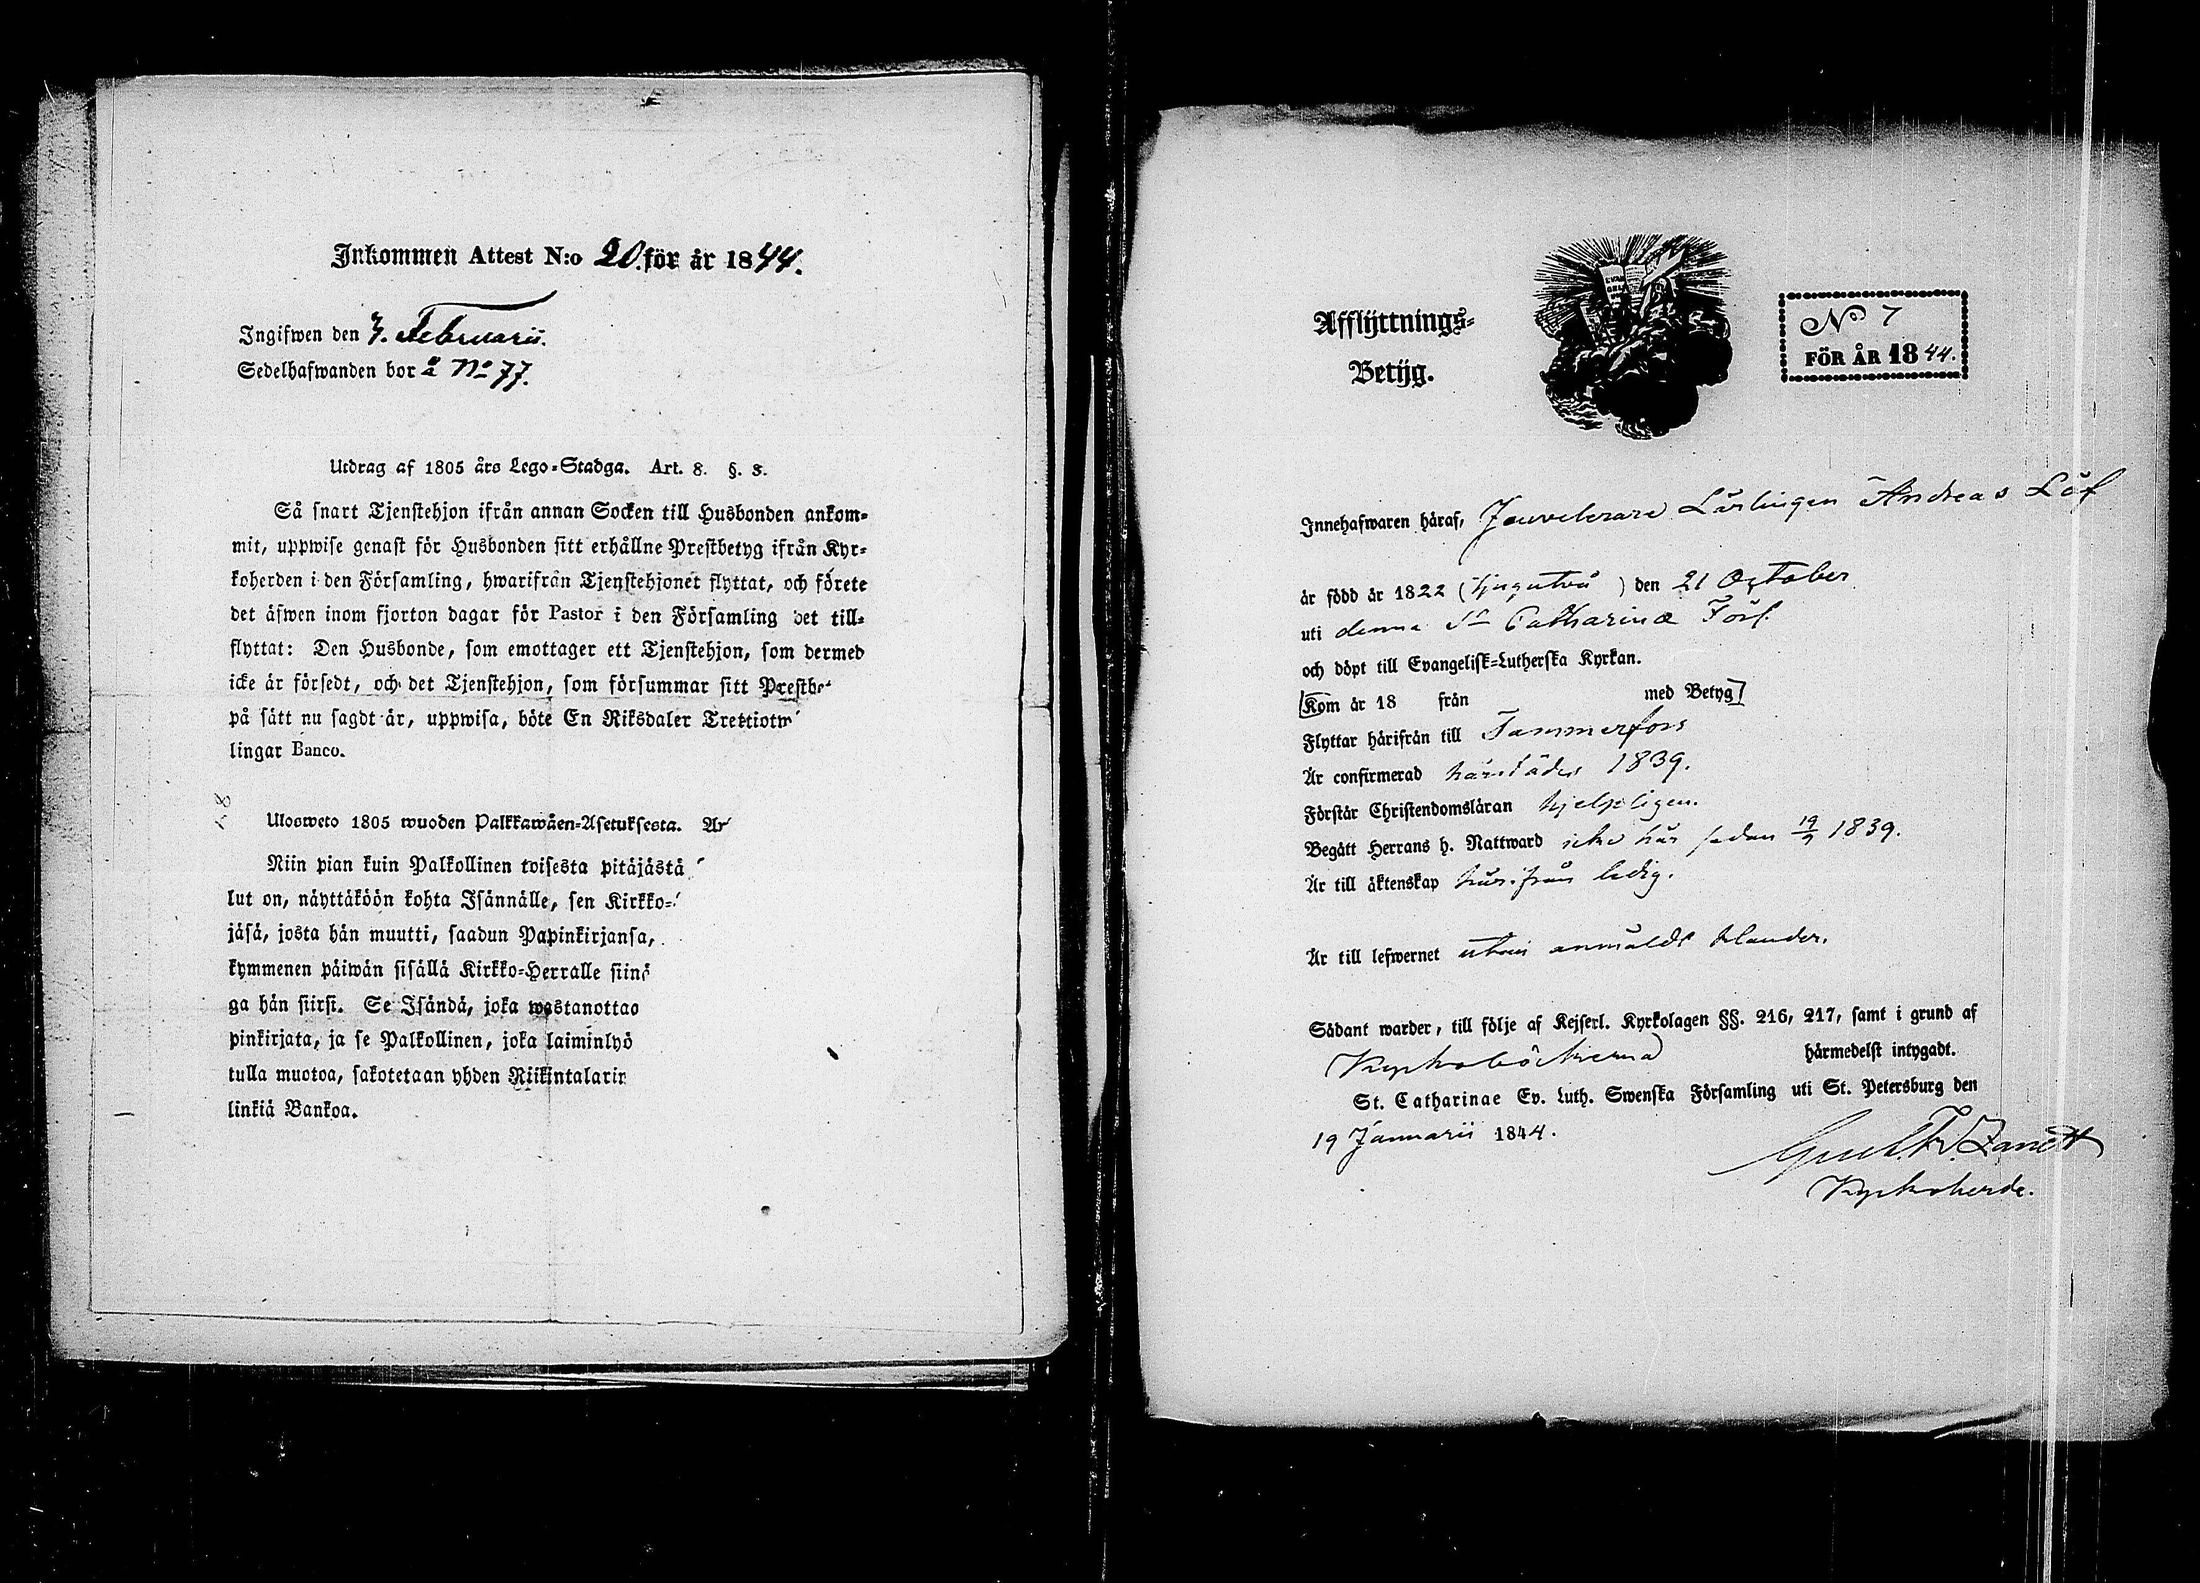 Inkommen Attest N:o 20. för år 1844.
Ingifwen den 7. Februarii.
Sedelhafwanden bor å No 77.
Utdrag af 1805 års Lego-Stadga. Art. 8. §. 8.
Så snart Tjenstehjon ifrån annan Socken till Husbonden ankom-
mit, uppwise genast för Husbonden sitt erhållne Prestbetyg ifrån Kyr-
koherden i den Församling, hwarifrån Tjenstehjonet flyttat, och förete
det äfwen inom fjorton dagar för Pastor i den Församling det till-
flyttat: Den Husbonde, som emottager ett Tjenstehjon, som dermed
icke är försedt, och det Tjenstehjon, som försummar sitt Prestbe
på sätt nu sagdt är, uppwisa, böte En Riksdaler Trettiotw
lingar Banco.
Ulosweto 1805 wuoden Palkkawäen-Asetuksesta. Ar
Niin pian kuin Palkollinen toisesta pitäjästä
lut on, näyttäköön kohta Isännälle, sen Kirkko-
jäsä, josta hän muutti, saadun Papinkirjansa,
kymmenen päiwän sisällä Kirkko-Herralle siinä
ga hän siirsi. Se Isändä, joka wastanottao
pinkirjata, ja se Palkollinen, joka laiminlyö
tulla muotoa, sakotetaan yhden Riikintalarin
linkiä Bankoa.
Afflyttnings-
Betyg.
No 7
FÖR ÅR 1844.
Innehafwaren häraf, Jouvelerare Lärlingen Andreas Löf
är född år 1822 (tjugutvå) den 21 October
uti denna St Catharinæ Förs.
och döpt till Evangelisk-Lutherska Kyrkan.
[Kom år 18 från med Betyg]
Flyttar härifrån till Tammerfors
Är confirmerad härstädes 1839.
Förstår Christendomsläran hjelpligen.
Begått Herrans h. Nattward icke här sedan 19/9 1839.
Är till äktenskap härifrån ledig.
Är till lefwernet utan anmäldt klander.
Sådant warder, till följe af Kejserl. Kyrkolagen §§. 216, 217, samt i grund af
Kyrkoböckerna härmedelst intygadt.
St. Catharinae Ev. Luth. Swenska Församling uti St. Petersburg den
19 Januarii 1844.
Kyrkoherde.